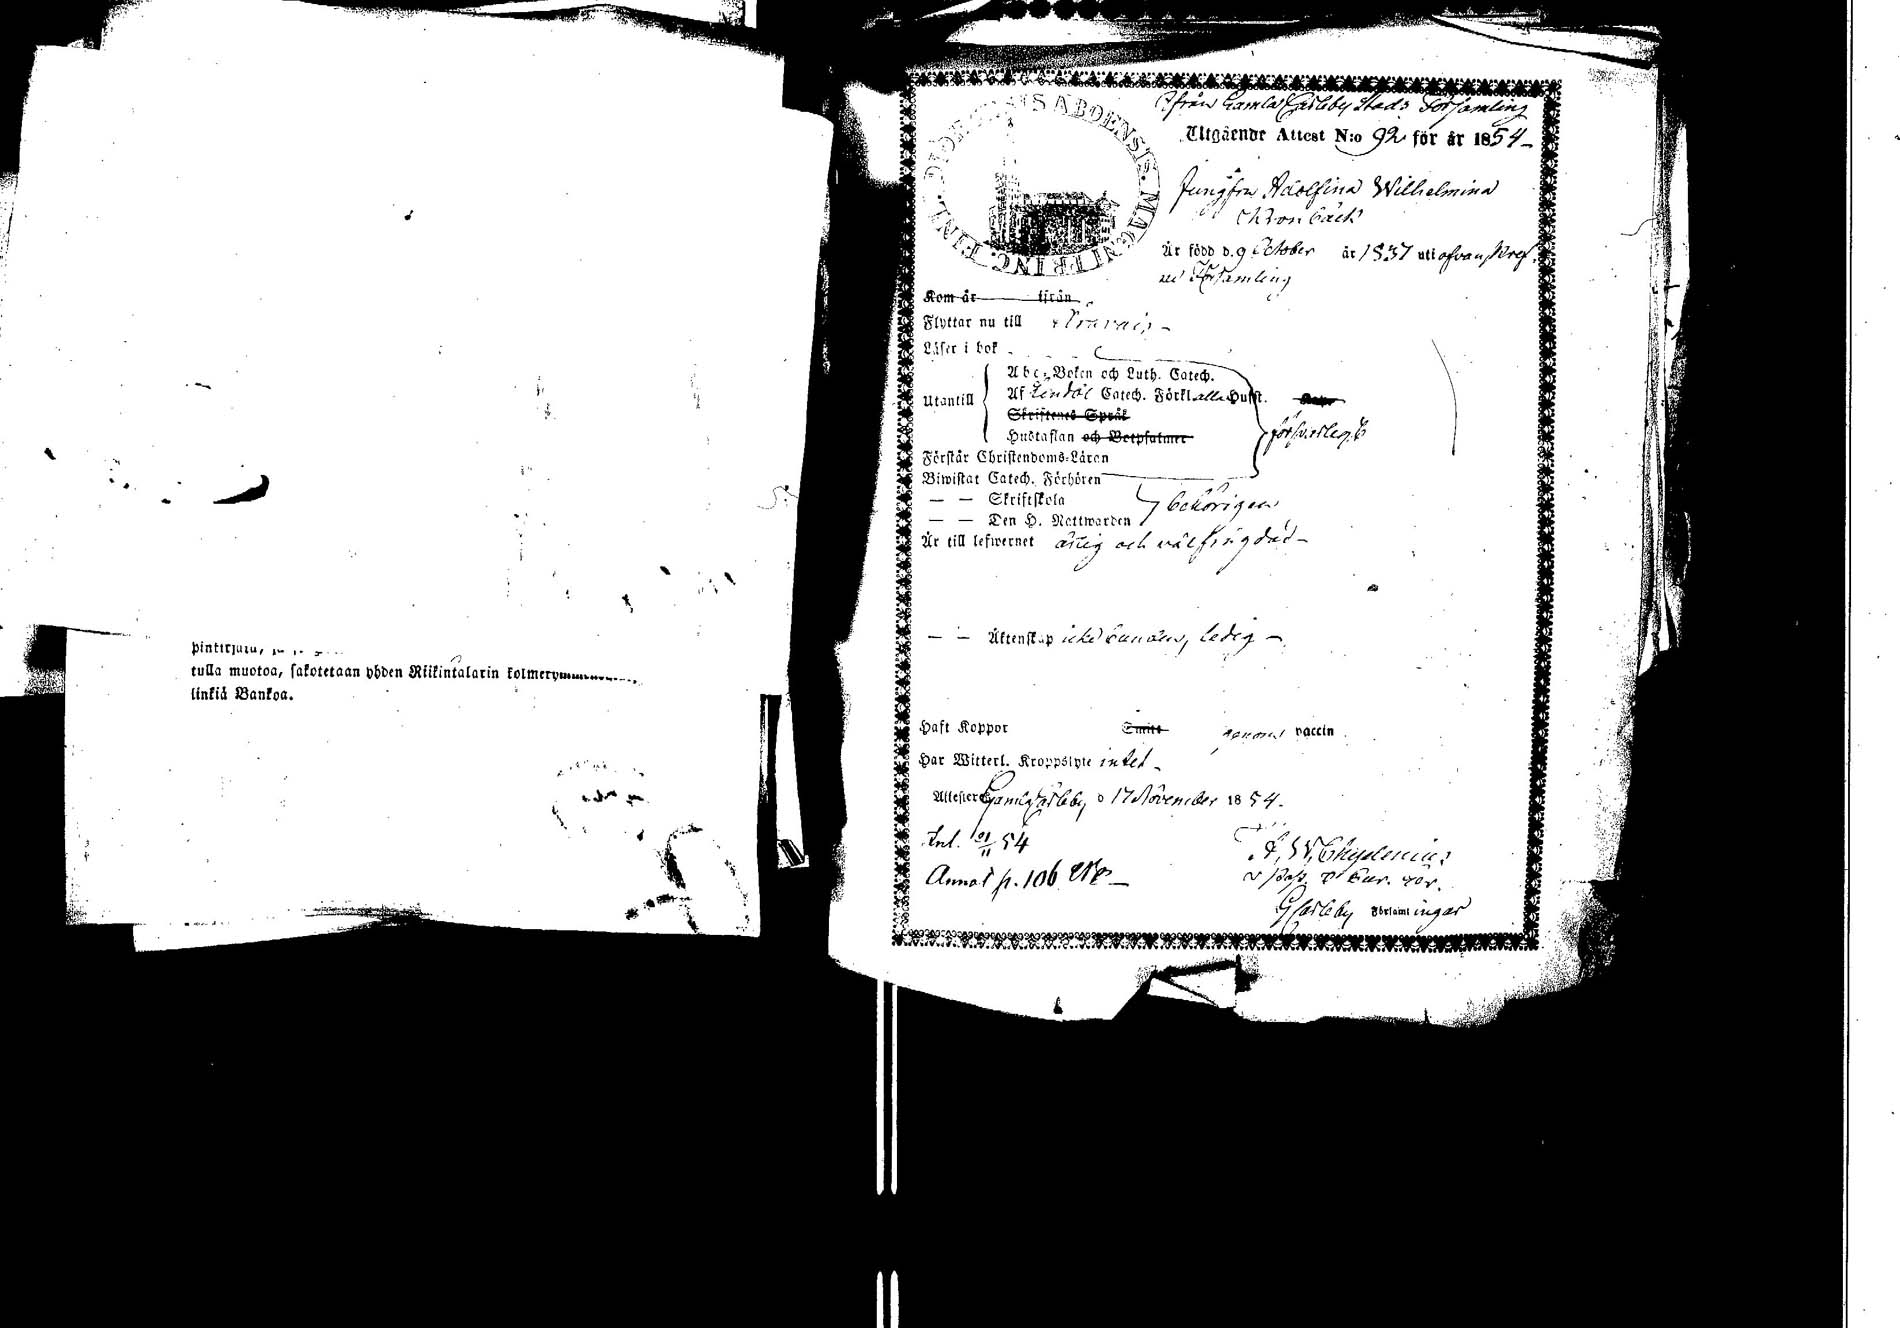 pintirjata,
tulla muotoa, sakotetaan yhden Riikintalarin kolmerymmenen
linkiä Bankoa.
DIOECESIS ABOENSIS. MAGNI PRINC. FINL.
Ifrån Gamla Carleby Stads Församling
Utgående Attest N:o 92 för år 1854
Jungfru Adolfina Wilhelmina
Är född d. 9 October år 1837 uti ofvanskref-
ne Församling
Kom år ifrån
Flyttar nu till Oravais
Läser i bok
Abc-Boken och Luth. Catech.
Utantill Af Lindål Catech. Förkl. alla Husst.
Skriftenes Språk
Hustaflan och Botpsalmer försvarligt
Förstår Christendoms-Läran
Biwistat Catech. Förhören
— — Skriftskola behörigen
— — Den H. Nattwarden
Är till lefwernet ärlig och välfrägdad
— — Äktenskap icke bunden, ledig
Haft Koppor Smitt genom vaccin
Har Witterl. Kroppslyte intet
Attesterar Gamlacarleby d 17 November 1854.
Inl. 21/11 54
Annot p. 106
A. W. Chydenius
v Past.
GCarleby Församlingar